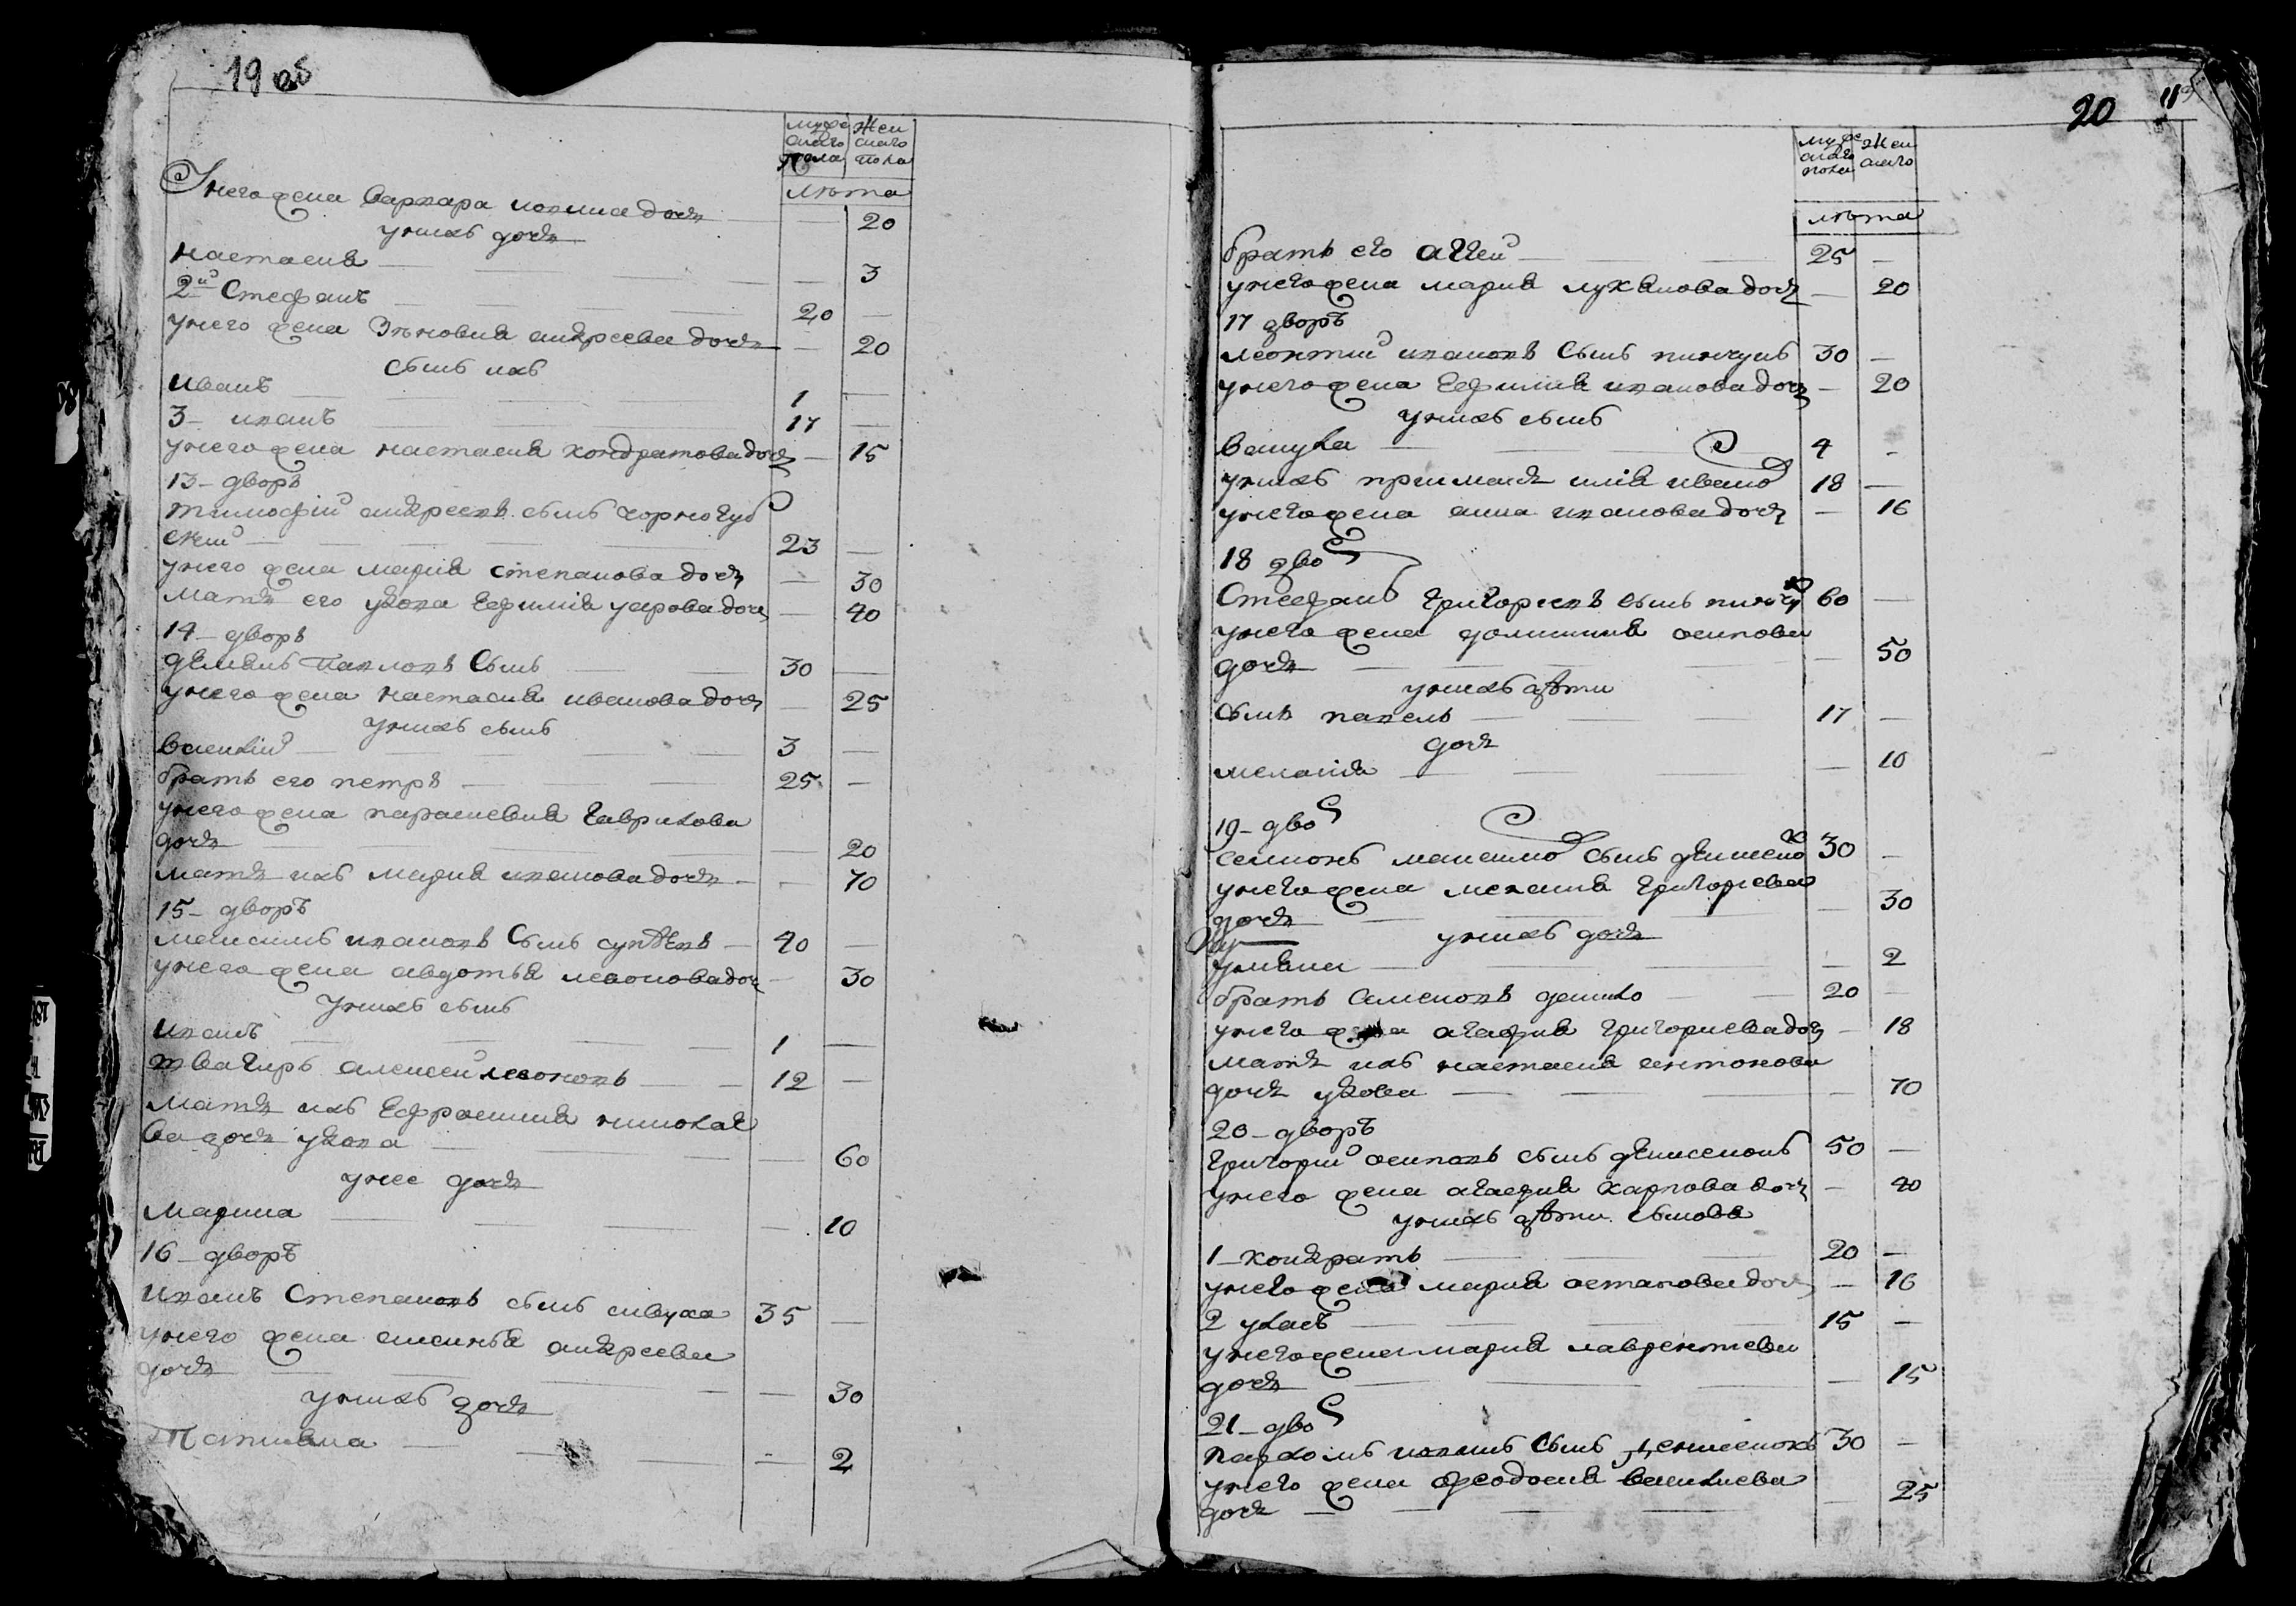 19 об
муже ского пола
жен ского пола
лѣта
У него жена варвара иовлиа дочь — 20
у нихъ дочь
настасия — 3
2й Стефанъ — 20 —
у него жена Зѣновия андреева дочь — 20
сынъ ихъ
иванъ — 1 —
3 – иванъ — 17 —
у него жена настасия кондратова дочь — 15
13 – дворъ
тимофій андреевъ сынъ чорногуб
ский — 23 —
у него жена мария степанова дочь — 30
мать его удова Еефимія уарова дочь — 40
14 – дворъ
демянъ павловъ Сынъ — 30 —
у него жена настасия иванова дочь — 25
у нихъ сынъ
василій — 3 —
братъ его петръ — 25 —
у него жена парасковия гаврилова
дочь — 20
мать ихъ мария иванова дочь — 70
15 – дворъ
максимъ ивановъ Сынъ — 40 —
у него жена авдотья леонова дочь — 30
у нихъ сынъ
иванъ — 1 —
алексей леоновъ — 12 —
мать ихъ Еефросиния николае
ва дочь удова — 60
у нее дочь
Марина — 10
16 – дворъ
иванъ Степановъ сынъ сивуха 35 —
у него жена аксинья андреева
дочь — 30
у нихъ дочь
Татияна — 2
20
муже ского пола
жен ского
лѣта
братъ его аггей — 25 —
у него жена мария лукянова дочь — 20
17 дворъ
леонтий ивановъ Сынъ пинчукъ 30 —
у него жена Еефимия иванова дочь — 20
у нихъ сынъ
ванука — 4 —
у нихъ приимачъ илія ивано 18 —
у него жена анна иванова дочь — 16
18 дво
Стефанъ григориевъ сынъ пинчу 60 —
у него жена домникия осипова
дочь — 50
у нихъ дѣти
сынъ павелъ — 17 —
дочь
мелания — 10
19 – дво
семионъ максимо сынъ денисено 30 —
у него жена мелания григориева
дочь — 30
у нихъ дочь
улияна — 2
братъ Семеновъ данило — 20 —
у него жена агафия григориева дочь — 18
мать ихъ настасия антонова
дочь удова — 70
20 – дворъ
григорий осиповъ сынъ денисенокъ 50 —
у него жена агафия карпова дочь — 40
у нихъ дѣти сыновя
1 – кондратъ — 20 —
у него жена мария остапова дочь — 16
2 уласъ — 15 —
у него жена мария лаврентиева
дочь — 15
21 – дво
пархомъ Сынъ денисенокъ 30 —
у него жена феодосия василиева
дочь — 25